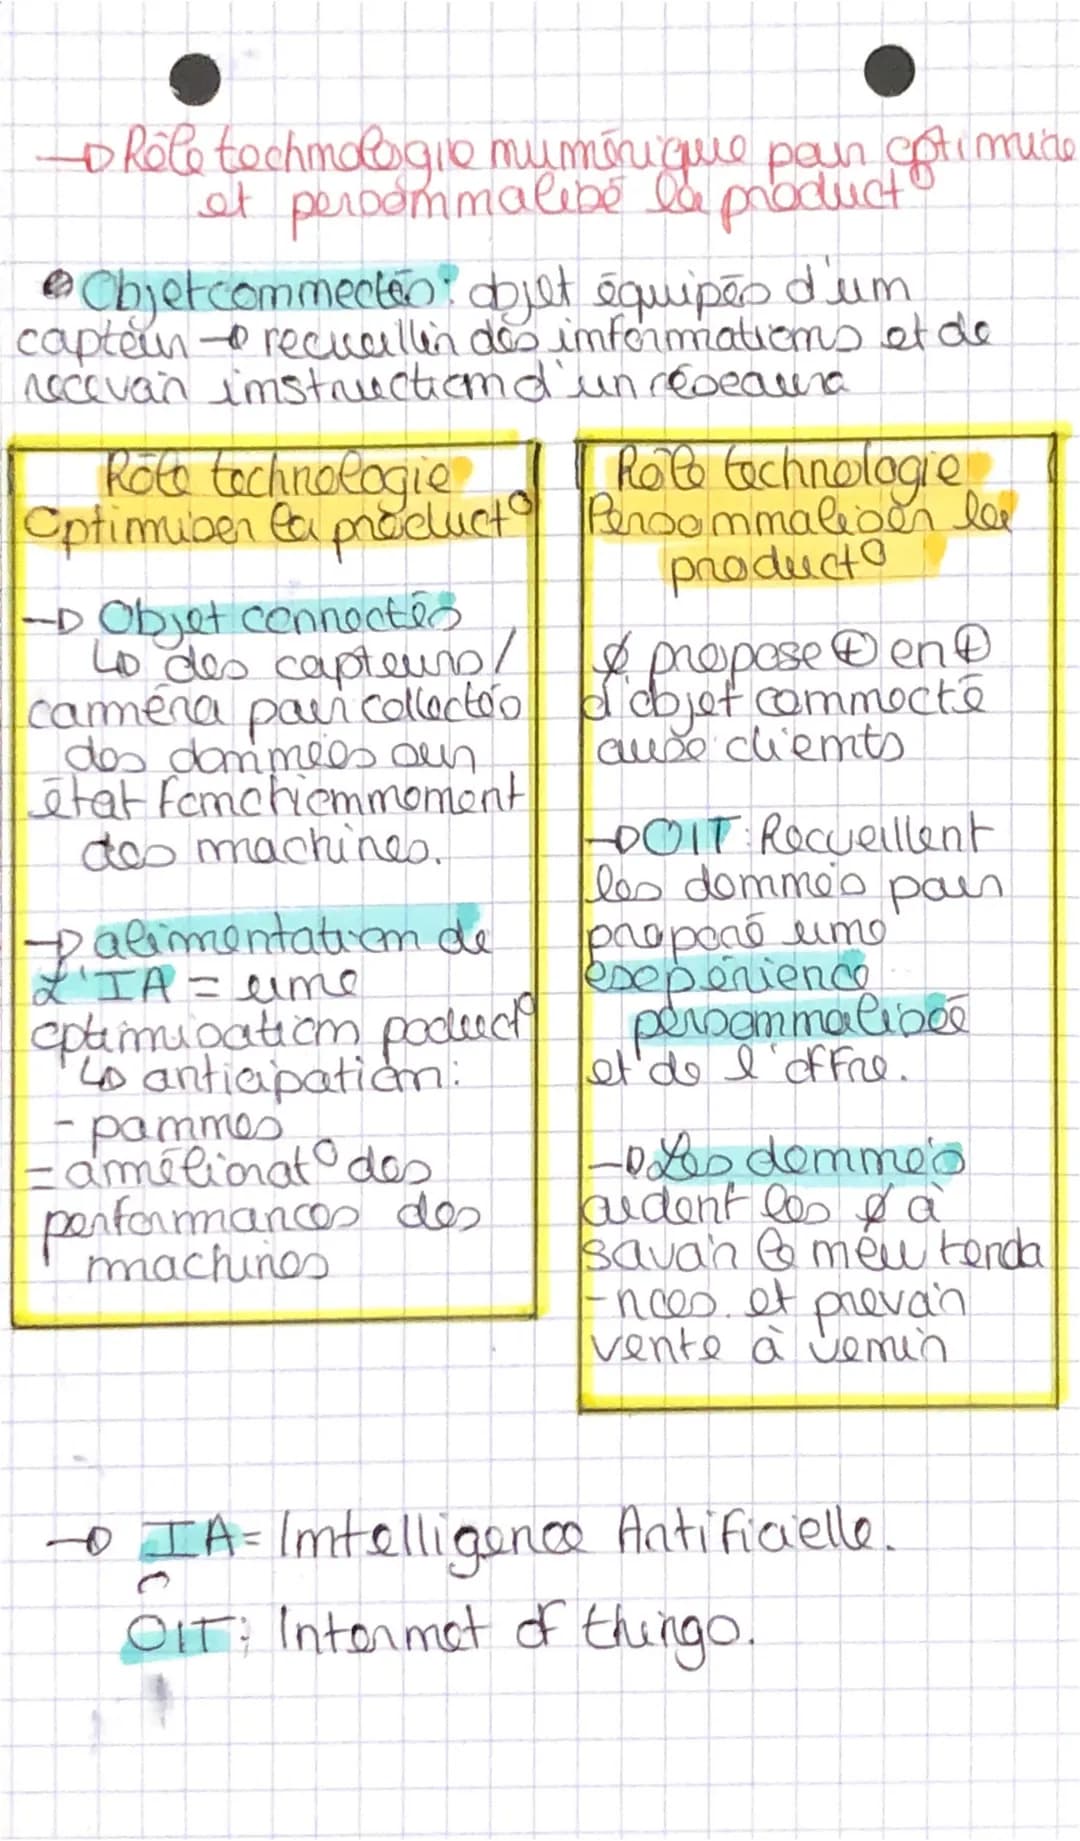 → Rôle technologie numérique pour optimise
et personnalisé la product°
• Objet connectés : objet équipés d'un
capteur → recueillir des informations et de
recevoir instruction d'un réseaux
Rôle technologie
Optimiser la product°
→ Objet connectés
↳ des capteurs /
caméra pour collectés
des données sur
état fonctionnement
des machines.
→ alimentation de
L'IA = une
optimisation poduct°
↳ anticipation :
- pannes
= améliorat° des
performances des
machines
Rôle technologie
Personnaliser la
product°
propose ⊕ en ⊕
d'objet connecté
aux clients
→ OIT : Recueillent
les données pour
proposé une
expérience
personnalisée
et de l'offre.
→ Les données
aident les à
savoir tenda
-nces. et prevoir
vente à venir
→ IA = Intelligence Artificielle.
OIT : Internet of things.